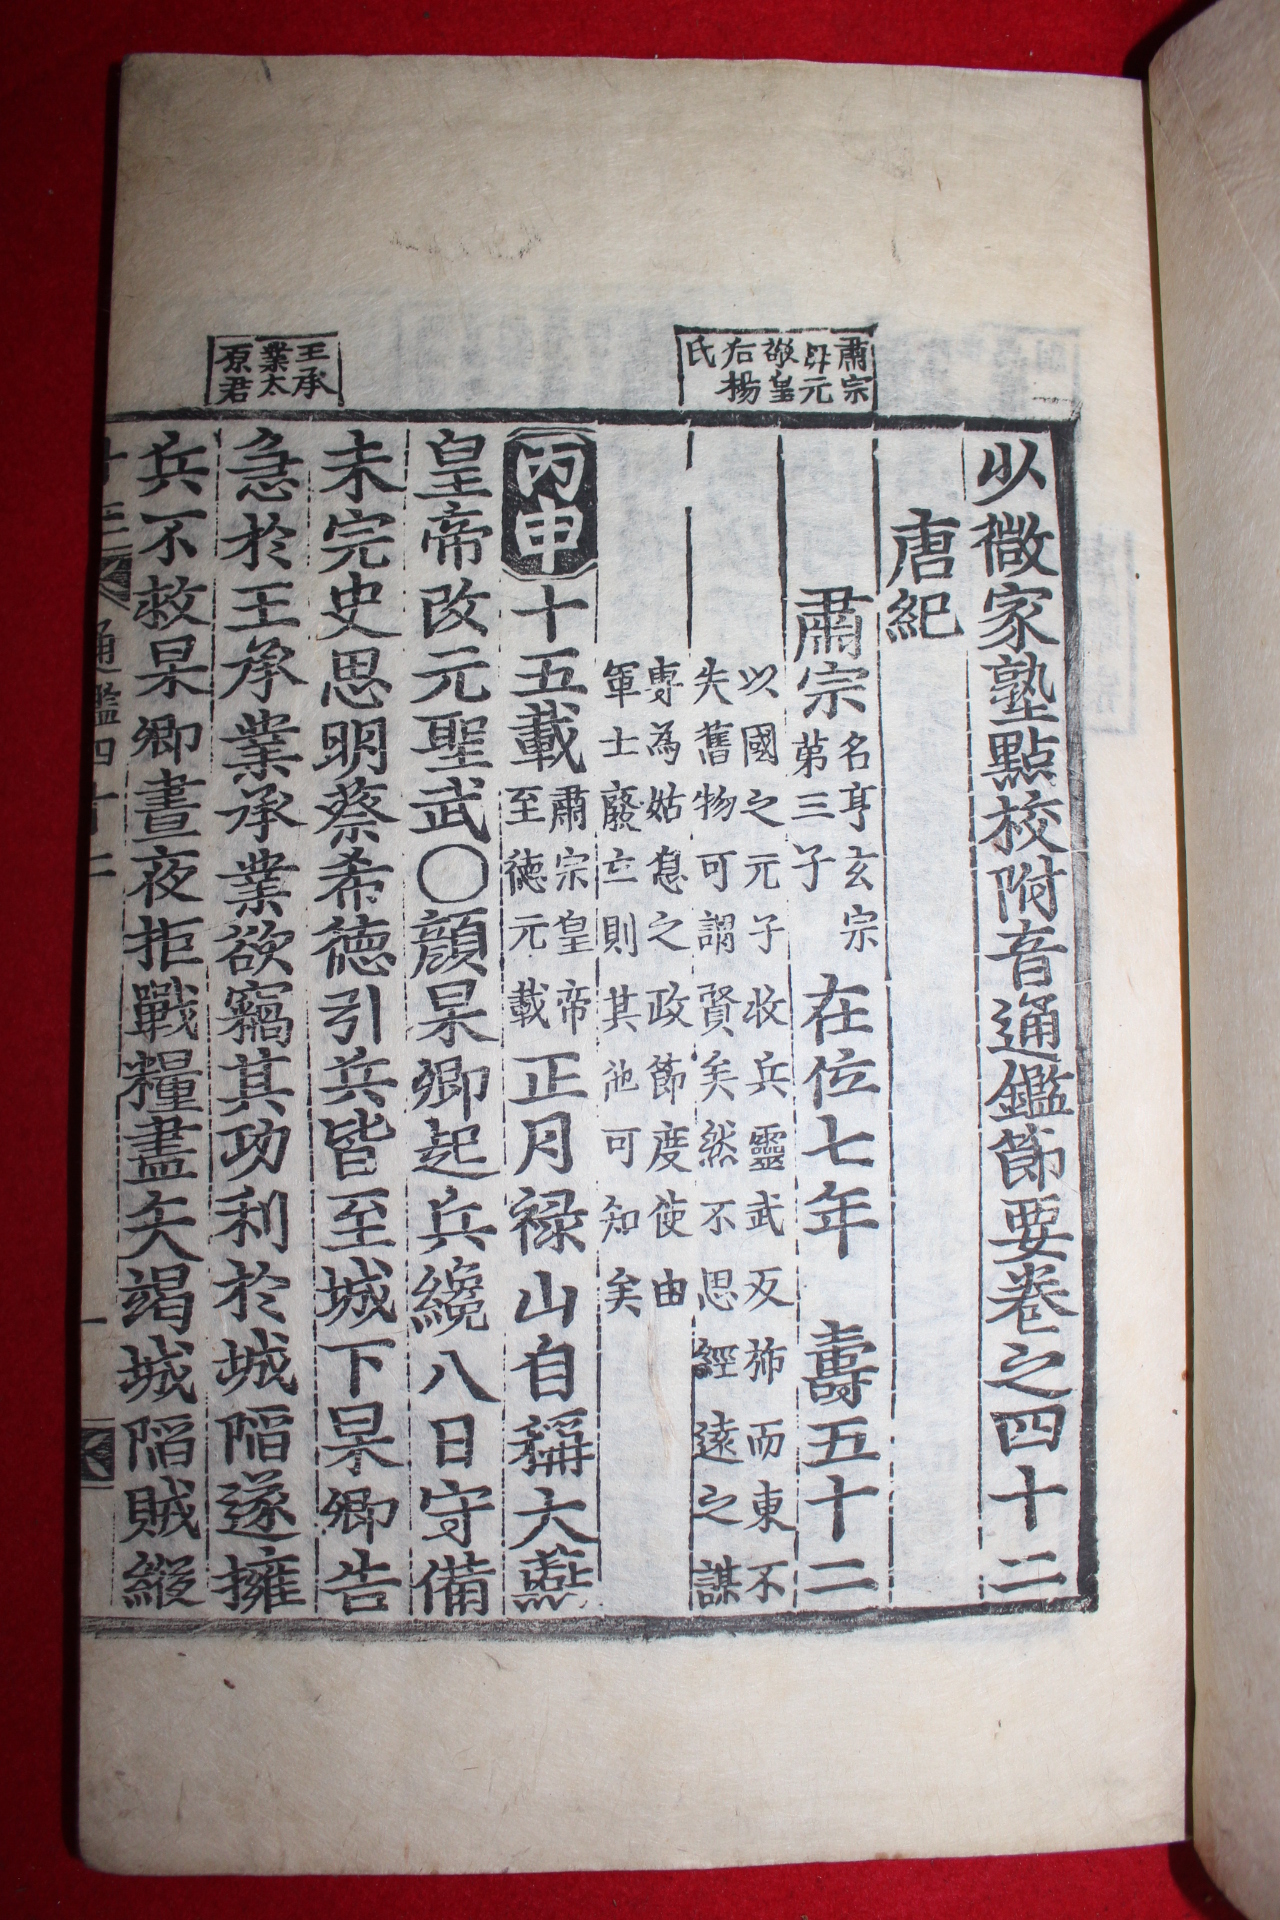 肅宗
母元
獻皇
后楊
氏
王承
業太
原君
少微家塾點校附音通鑑節要卷之四十二
唐紀
肅宗名亨玄宗第三子在位七年 壽五十二
以國之元子收兵靈武反斾而東不
失舊物可謂賢矣然不思經遠之謀
專為姑息之政節度使由
軍士廢立則其他可知矣
丙申十五載肅宗皇帝至德元載正月祿山自稱大燕
皇帝改元聖武○顔杲卿起兵纔八日守備
未完史思明蔡希德引兵皆至城下杲卿告
急於王承業承業欲竊其功利於城陷遂擁
兵不救杲卿晝夜拒戰糧盡矢竭城陷賊縱
通鑑四十二
一